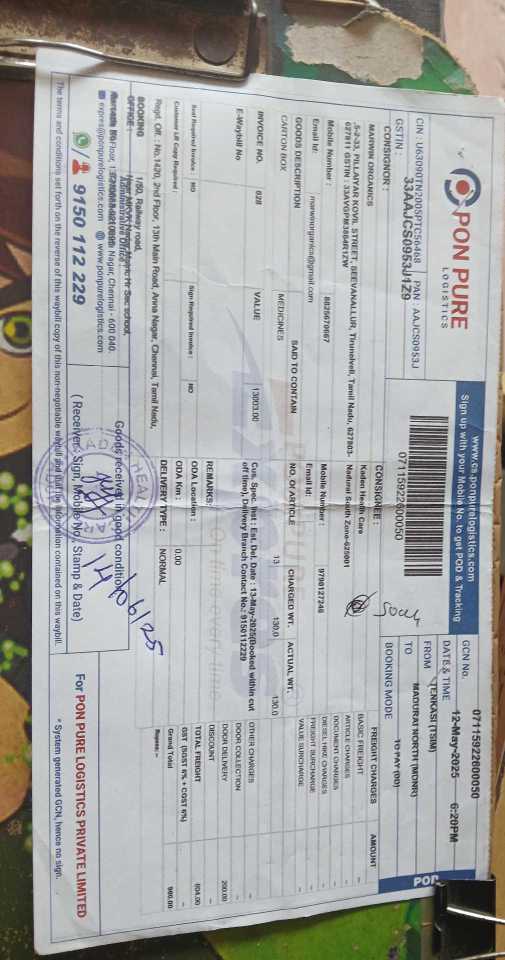 PON PURE
LOGISTICS
CIN : U63090TN2005PTC56468 PAN : AAJCS0953J
GSTIN : 33AAJCS0953J1Z9
www.cs.ponpurelogistics.com
Sign up with your Mobile No. to get POD & Tracking
07115922600050
GCN No. 07115922600050
DATE & TIME 12-May-2025 6:20PM
FROM TENKASI (TSIM)
TO MADURAI NORTH (MDNR)
BOOKING MODE TO PAY (DD)
POD
CONSIGNOR :
MARWIN ORGANICS
,5-2-33, PILLAIYAR KOVIL STREET, SEEVANALLUR, Tirunelveli, Tamil Nadu, 627803-
627811 GSTIN : 33AVGPM3864R1ZW
Mobile Number : 8825970667
Email Id: marwinorganics@gmail.com
CONSIGNEE :
Kaden Health Care
Madurai South Zone-625001
Mobile Number : 9790127246
Email Id:
GOODS DESCRIPTION SAID TO CONTAIN NO. OF ARTICLE CHARGED WT. ACTUAL WT.
CARTON BOX MEDICINES 13 130.0 130.0
INVOICE NO. 028 VALUE 13803.00
E-Waybill No
Cus. Spec. Inst : Est. Del. Date : 13-May-2025(Booked within cut
off time), Delivery Branch Contact No.: 9150112229
REMARKS:
Seal Required Invoice : NO Sign Required Invoice : NO
Customer LR Copy Required :
ODA Location :
ODA Km : 0.00
DELIVERY TYPE : NORMAL
FREIGHT CHARGES AMOUNT
BASIC FREIGHT
ARTICLE CHARGES
DOCUMENT CHARGES
DIESEL HIKE CHARGES
FREIGHT SURCHARGE
VALUE SURCHARGE
OTHER CHARGES
DOOR COLLECTION
DOOR DELIVERY 200.00
DISCOUNT
TOTAL FREIGHT 804.00
GST (SGST 6% + CGST 6%)
Grand Total 900.00
Rupees: -
Regd. Off : No.1420, 2nd Floor, 13th Main Road, Anna Nagar, Chennai, Tamil Nadu,
BOOKING OFFICE : 1/50, Railway road,
Nagar, Chennai - 600 040.
www.ponpurelogistics.com
9150 112 229
Goods received in good condition
14/06/25
( Receiver Sign, Mobile No, Stamp & Date)
For PON PURE LOGISTICS PRIVATE LIMITED
* System generated GCN, hence no sign.
The terms and conditions set forth on the reverse of this waybill copy of this non-negotiable waybill and that the information contained on this waybill.